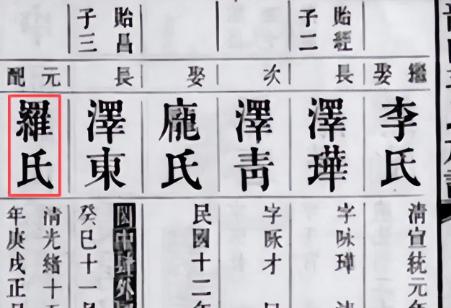 繼娶
李氏
清宣統元年
貽經
子二
長
澤璍
字咏璍
次
澤青
才
娶
龐氏
民國十二年
貽昌
子三
長
澤東
中肆外
癸巳十一月
元配
羅氏
清光緒十
年庚戌正